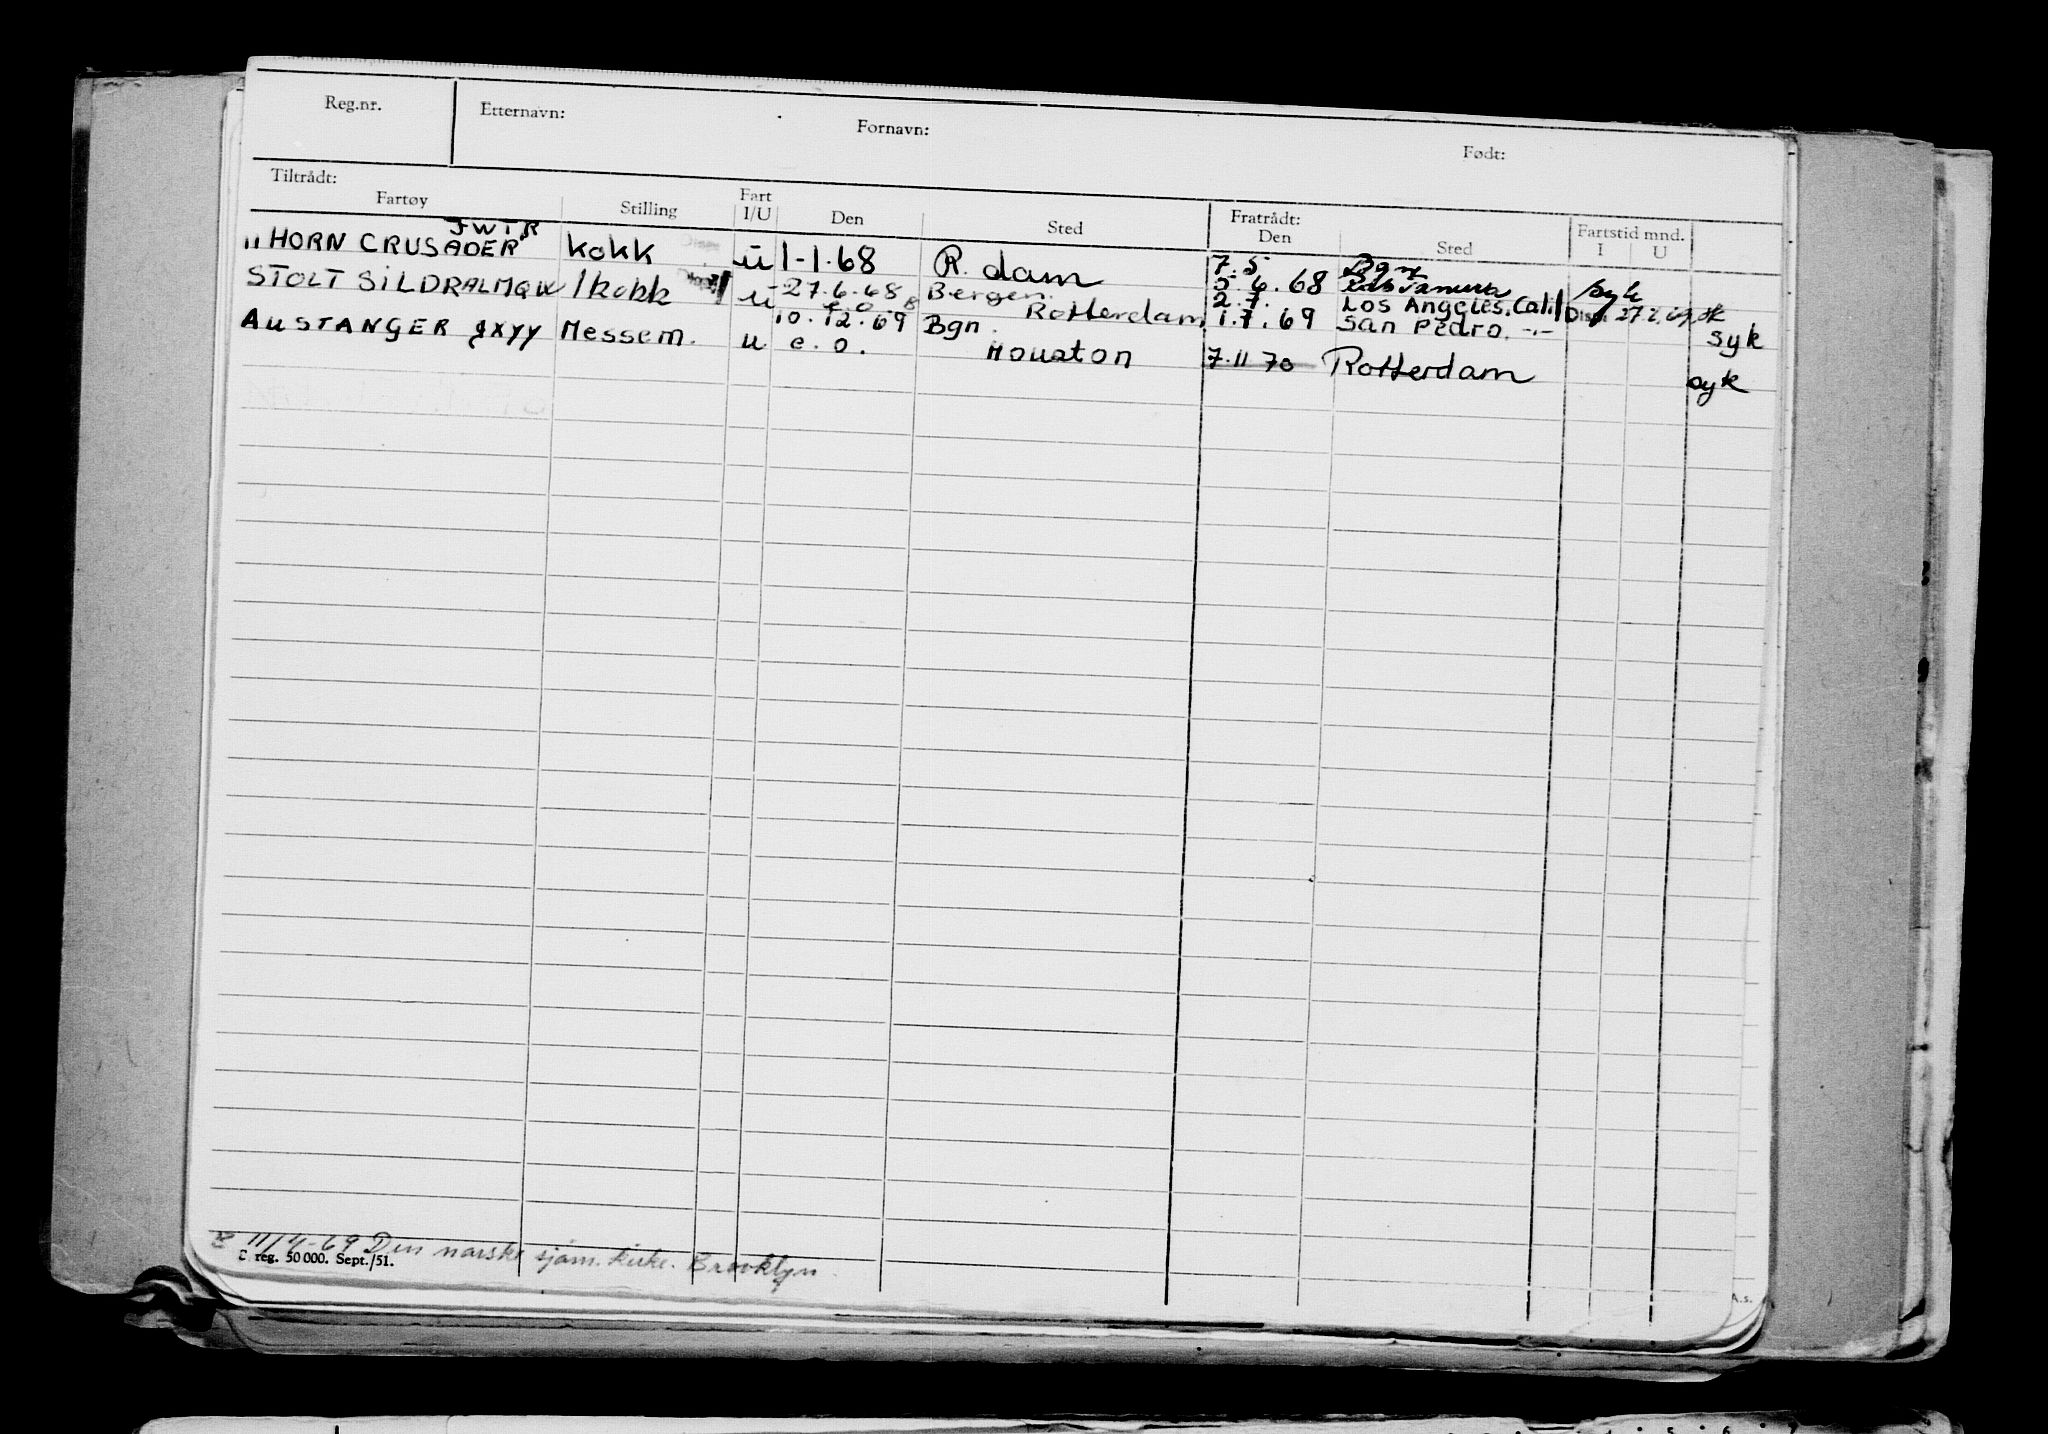 Reg.nr. Etternavn: Fornavn: Født:
Tiltrådt: Fratrådt: Fartstid mnd.
Fartøy Stilling Fart I/U Den Sted Den Sted I U
JWTR
" HORN CRUSADER kokk u 1-1-68 R.dam 7.5 Dan
5.6.68 Ras Tanura syk
STOLT SILDRA LMQW 1kokk u 27.6.68 Bergen 2.7. Los Angeles. Cal.
e.o. 8 Rotterdam 1.7.69 San Pedro. -.- syk
AUSTANGER JXYY Messem. u 10.12.69 Bgn.
e.o. Houston 7.11.70 Rotterdam syk
11/4-69 Den norske sjøm. kirke. Brooklyn.
reg. 50 000. Sept./51.
A.s.